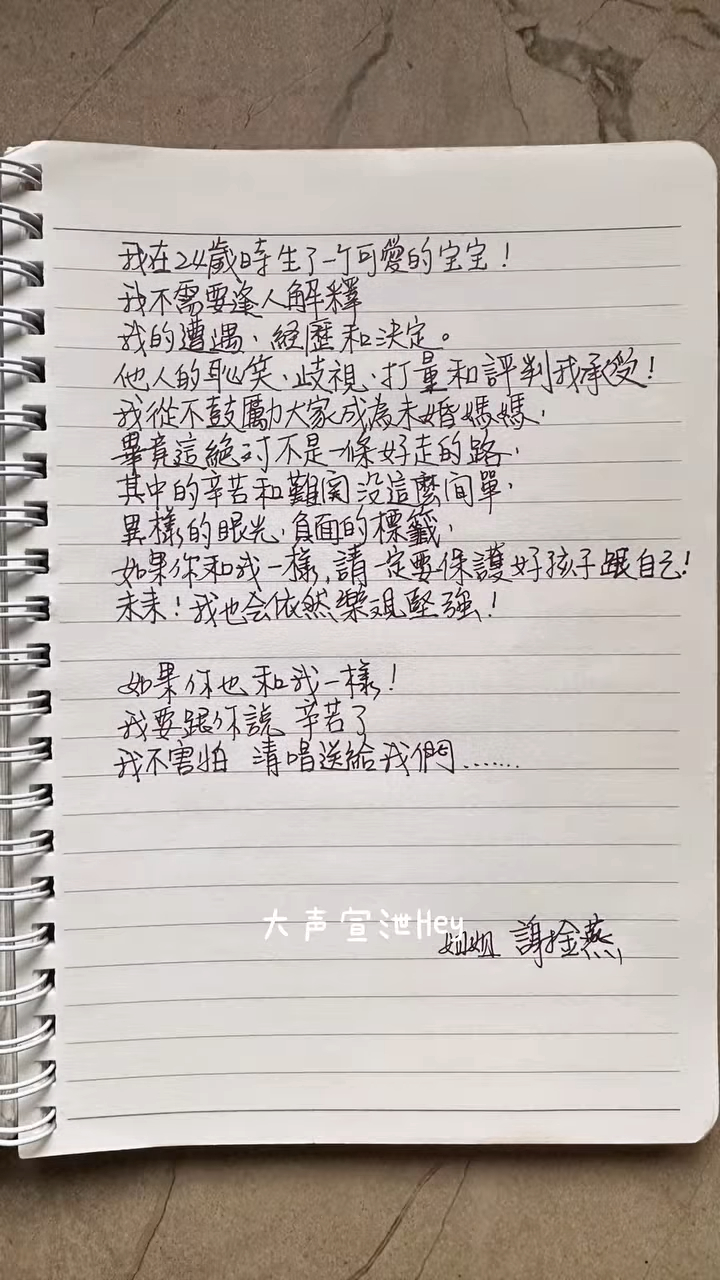 我在24歲時生了一个可愛的宝宝！
我不需要逢人解釋
我的遭遇、経歷和決定。
他人的恥笑、歧視、打量和評判我承受！
我從不鼓勵大家成為未婚媽媽，
畢竟這絕对不是一條好走的路，
其中的辛苦和難関没這麼间單，
異樣的眼光，負面的標籤，
如果你和我一樣，請一定要保護好孩子跟自己！
未来！我也会依然樂观堅強！
如果你也和我一樣！
我要跟你說 辛苦了
我不害怕 清唱送給我們……
大声宣泄Hey
姐姐 謝金燕